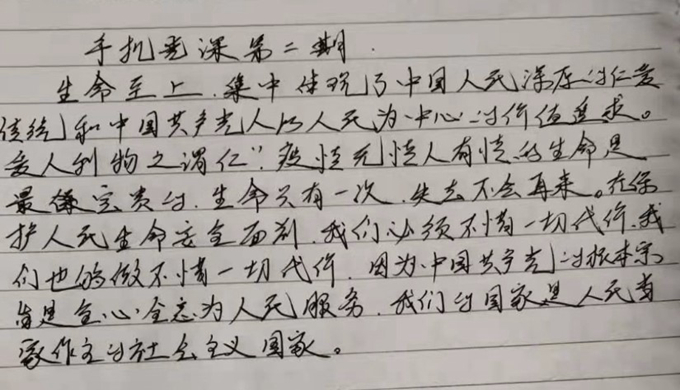 手机党课第二期.
生命至上.集中体现了中国人民深厚的仁爱
传统和中国共产党人以人民为中心的价值追求。
爱人利物之谓仁"疫情无情人有情的生命是
最宝贵的.生命只有一次.失去不会再来。在保
护人民生命安全面前.我们必须不惜一切代价.我
们也能做不惜一切代价.因为中国共产党的根本宗
旨是全心全意为人民服务.我们的国家是人民当
家作主的社会主义国家。